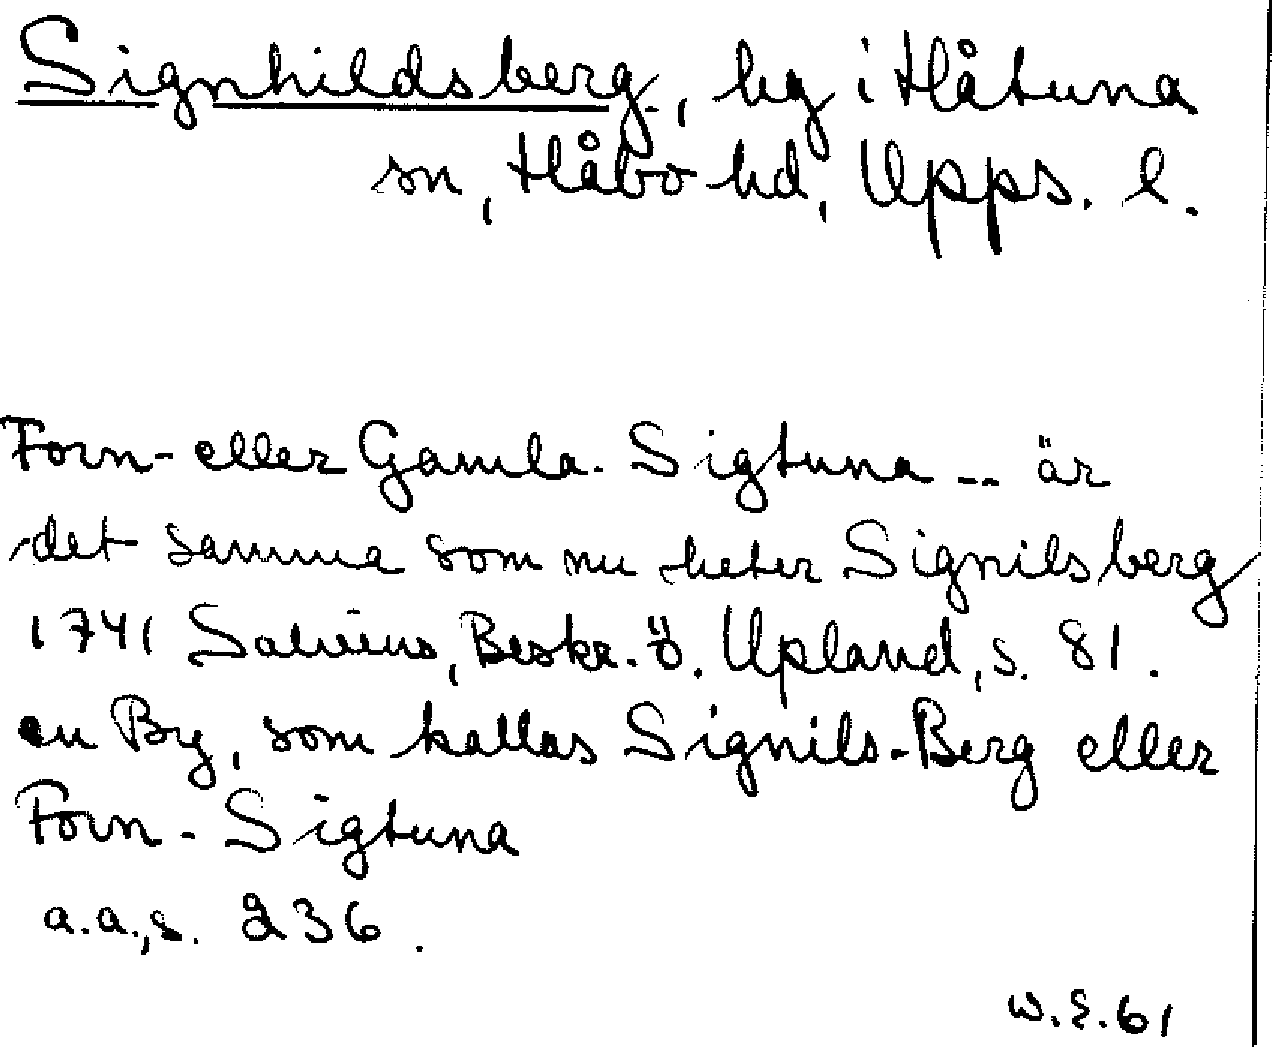 Signhildsberg, hg i Håtuna
sn, Håbo hd, Upps. l.
Forn- eller Gamla- Sigtuna -- är
det samma som nu heter Signilsberg
1741 Salvius, Beskr. ö. Upland, s. 81.
en By, som kallas Signils-Berg eller
Forn-Sigtuna
a.a., s. 236.
W.E. 61